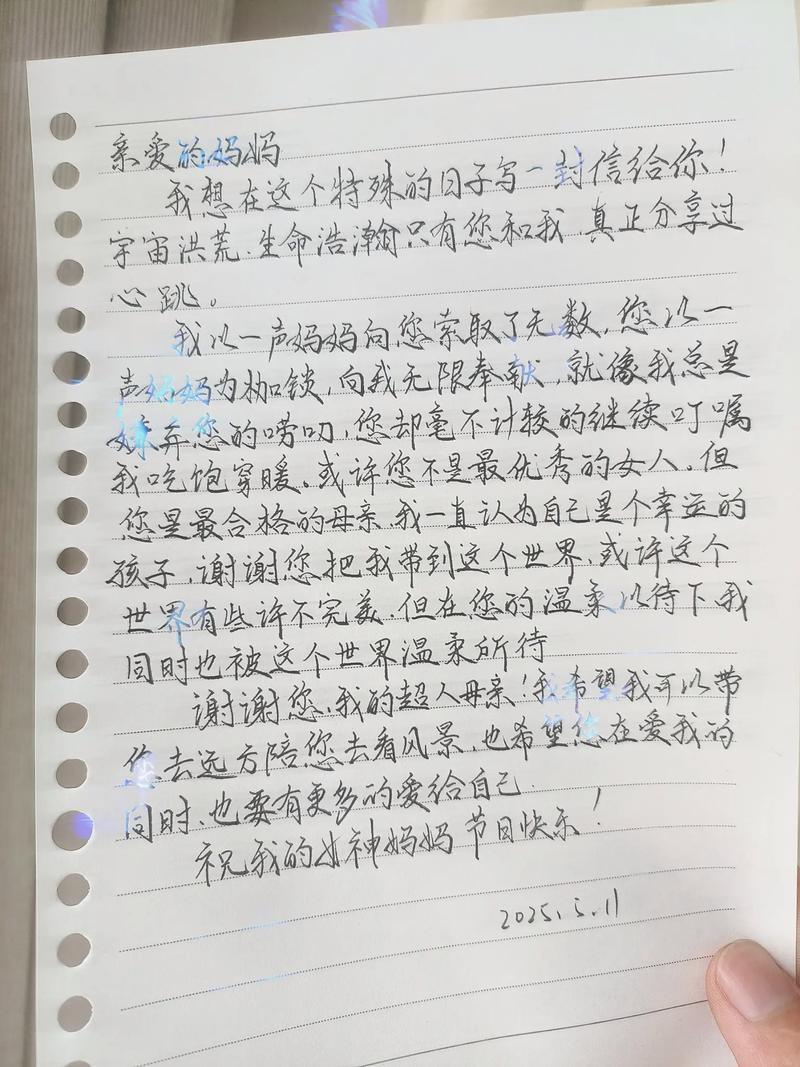 亲爱的妈妈
我想在这个特殊的日子写一封信给你！
宇宙洪荒、生命浩瀚只有您和我 真正分享过
心跳。
我以一声妈妈向您索取了无数，您以一
声妈妈为枷锁，向我无限奉献，就像我总是
嫌弃您的唠叨，您却毫不计较的继续叮嘱
我吃饱穿暖。或许您不是最优秀的女人，但
您是最合格的母亲。我一直认为自己是个幸运的
孩子，谢谢您把我带到这个世界，或许这个
世界有些许不完美，但在您的温柔以待下，我
同时也被这个世界温柔所待
谢谢您，我的超人母亲！我希望我可以带
您去远方陪您去看风景，也希望您在爱我的
同时、也要有更多的爱给自己.
祝我的女神妈妈节日快乐！
2025.5.11